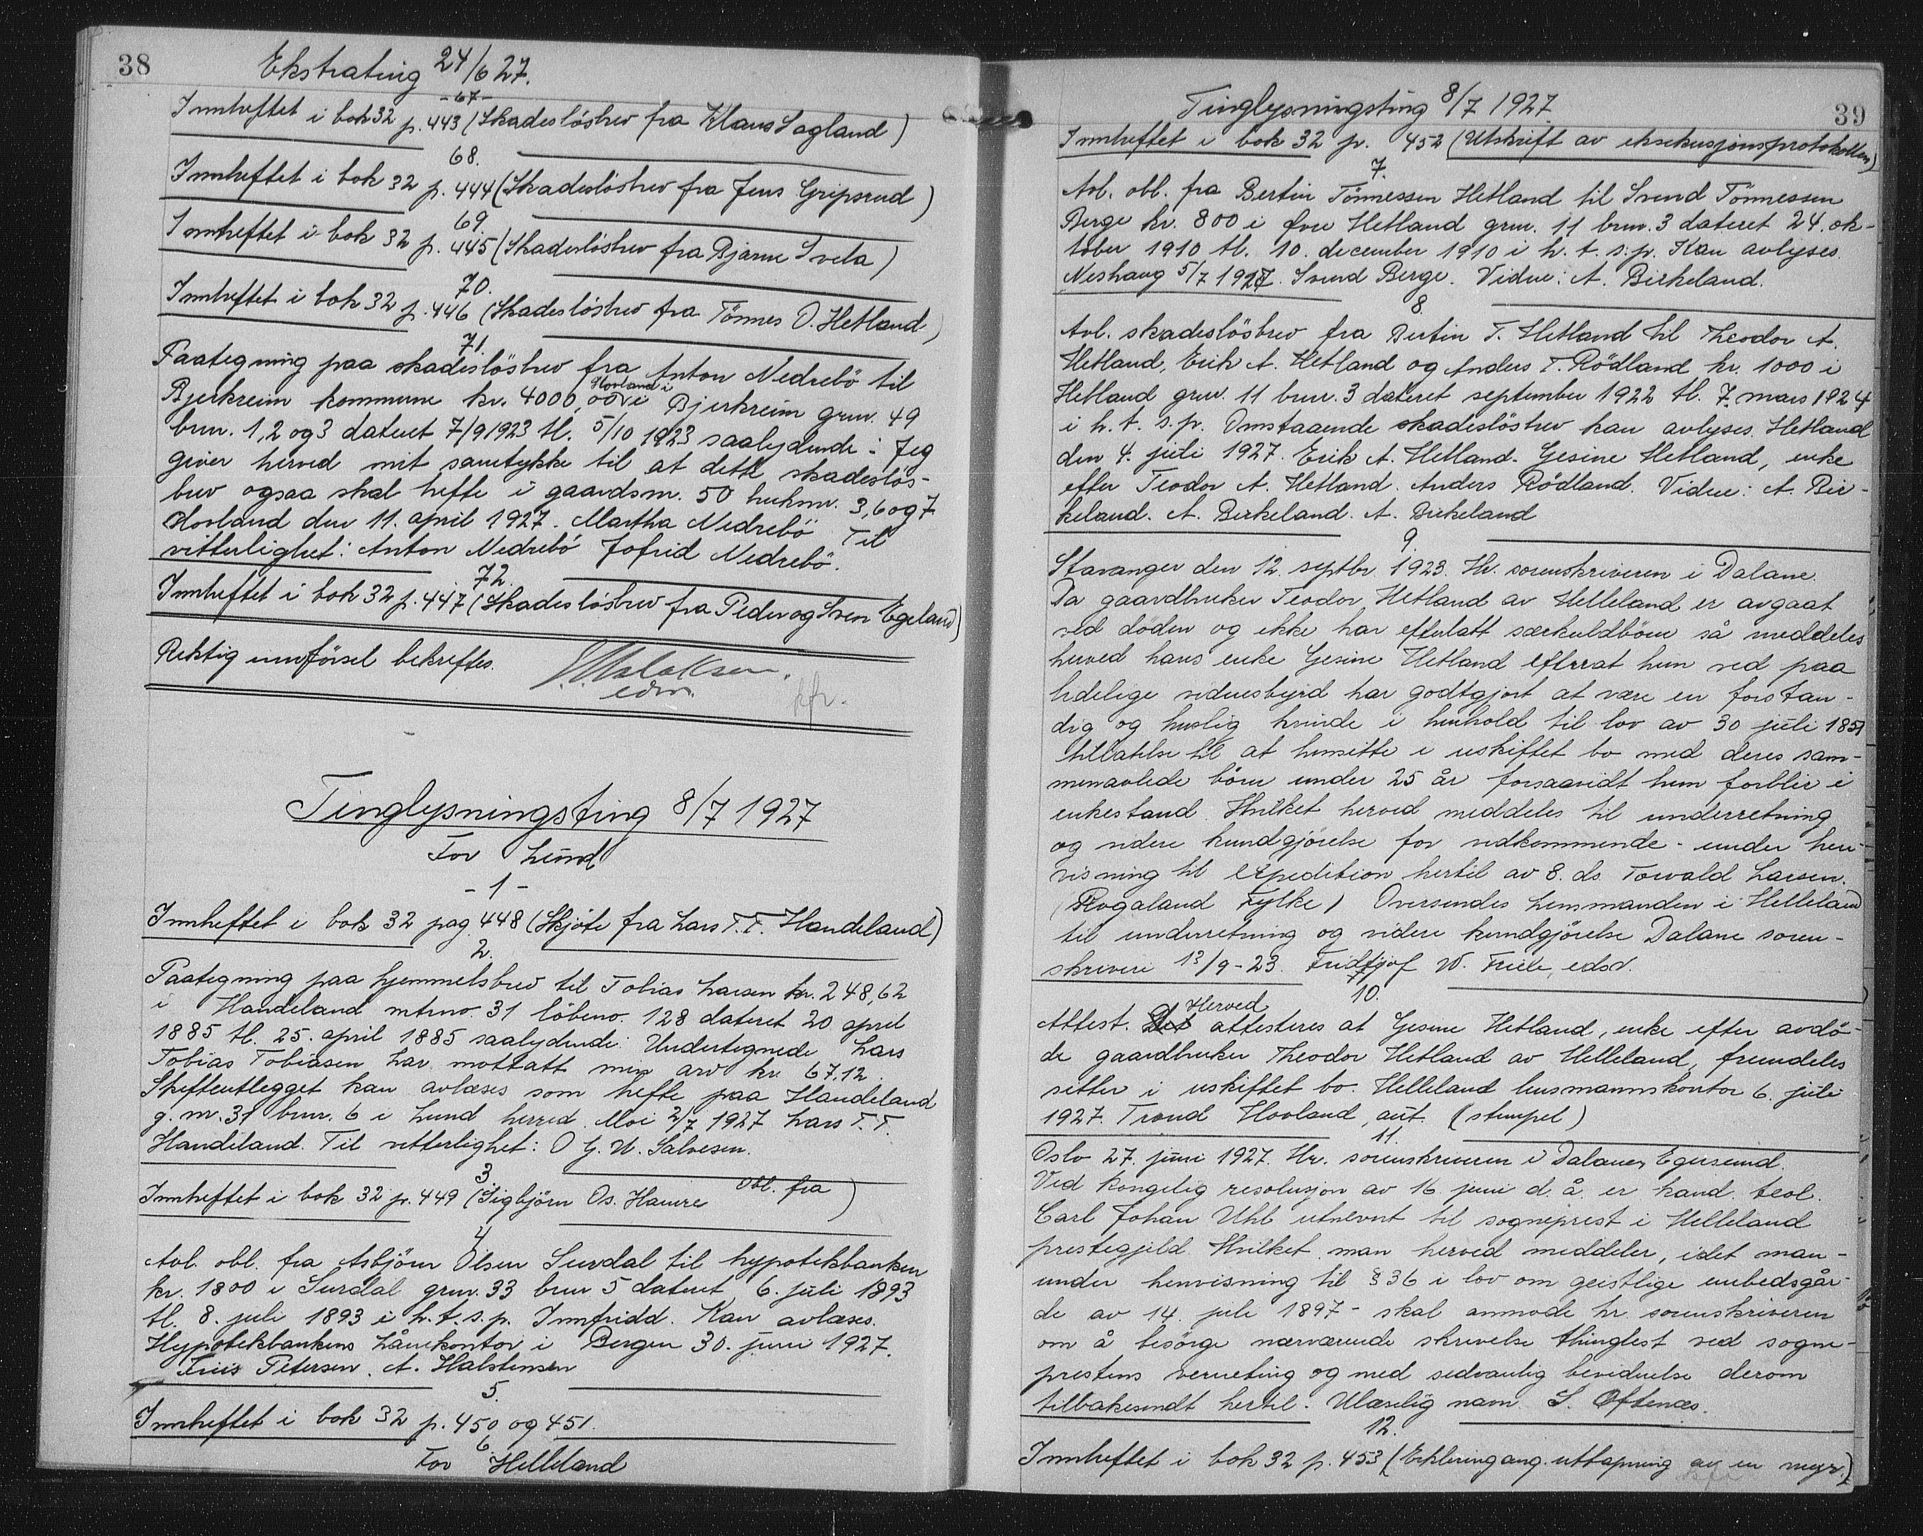 38
Ekstrating 24/6 27.
-67-
Innheftet i bok 32 p. 443 (Skadesløsbrev fra Klaus Sagland)
68.
Innheftet i bok 32 p. 444 (Skadesløsbrev fra Jens Gripsrud)
69.
Innheftet i bok 32 p. 445 (Skadesløsbrev fra Bjarne Svela)
70.
Innheftet i bok 32 p. 446 (Skadesløsbrev fra Tönnes O. Hetland)
71.
Paategning paa skadeslösbrev fra Anton Nedrebö til
Bjerkreim kommune kr. 4000,00 i Hovland i Bjerkreim grnr. 49
brnr. 1, 2 og 3 dateret 7/9 1923 tl. 5/10 1923 saalydende: Jeg
giver herved mit samtykke til at dette skadeslös-
brev ogsaa skal hefte i gaardsnr. 50 bruksnr. 3, 6 og 7
Hovland den 11. april 1927. Martha Nedrebö Til
vitterlighet: Anton Nedrebö Jofrid Nedrebö.
72.
Innheftet i bok 32 p. 447 (Skadeslösbrev fra Peder og Sven Egeland)
Riktig innförsel bekreftes.
edsv.
Tinglysningsting 8/7 1927
For Lund
-1-
Innheftet i bok 32 pag. 448 (Skjöte fra Lars T. T. Handeland)
2.
Paategning paa hjemmelsbrev til Tobias Larsen kr. 248,62
i Handeland mtrno. 31 löbeno. 128 dateret 20 april
1885 tl. 25. april 1885 saalydende: Undertegnede Lars
Tobias Tobiasen har mottatt min arv kr. 67.12.
Skifteutlegget kan avlæses som hefte paa Handeland
g. nr. 31 brnr. 6 i Lund herred. Moi 2/7 1927 Lars T. T.
Handeland. Til vitterlighet: O G. U. Salvesen.
3.
Innheftet i bok 32 p. 449 (Sigbjörn Os. Haure obl. fra)
4
Avl. obl. fra Asbjörn Olsen Surdal til hypotekbanken
kr. 1800 i Surdal grnr. 33 brnr 5 dateret 6. juli 1893
tl. 8. juli 1893 i h. t. s. p. Innfridd. Kan avlæses.
Hypotekbankens Lånekontor i Bergen 30. juni 1927.
Friis Petersen. A. Halstensen
5.
Innheftet i bok 32 p. 450 og 451.
6
For Helleland
39
Tinglysningsting 8/7 1927.
Innheftet i bok 32 p. 452 (Utskrift av eksekusjonsprotokollen)
7.
Avl. obl. fra Bertin Tönnessen Hetland til Svend Tönnessen
Berge kr. 800 i Övre Hetland grnr. 11 brnr. 3 dateret 24. ok-
tober 1910 tl. 10. december 1910 i h. t. s. p. Kan avlyses.
Neshaug 5/7 1927. Svend Berge. Vidne: A. Birkeland.
8.
Avl. skadeslösbrev fra Bertin T. Hetland til Theodor A.
Hetland, Erik A. Hetland og Anders T. Rödland kr. 1000 i
Hetland grnr. 11 brnr. 3 dateret september 1922 tl. 7. mars 1924
i h. t. s. p. Omstaaende skadeslösbrev kan avlyses. Hetland
den 4. juli 1927. Erik A. Hetland. Gesine Hetland, enke
efter Teodor A. Hetland. Anders Rödland. Vidne: A. Bir-
keland. A. Birkeland. A. Birkeland
9.
Stavanger den 12. septbr. 1923. Hr. sorenskriveren i Dalane.
Da gaardbruker Teodor Hetland av Helleland er avgaat
ved döden og ikke har efterlatt særkuldbörn så meddeles
herved hans enke Gesine Hetland efterat hun ved paa
lidelige vidnesbyrd har godtgjort at være en forstan-
dig og huslig kvinde i henhold til lov av 30 juli 1851
tillatelse til at hensitte i uskiftet bo med deres sam-
menavlede börn under 25 år forsaavidt hun forblir i
enkestand. Hvilket herved meddeles til underretning
og videre kundgjörelse for vedkommende - under hen-
visning til expedition hertil av 8. ds. Torvald Larsen.
(Rogaland Fylke) Oversendes Lensmanden i Helleland
til underretning og videre kundgjörelse Dalane soren-
skriveri 13/9-23. Fridtjof W. Friele, edsv.
10.
Attest. Herved attesteres at Gesine Hetland, enke efter avdö-
de gaardbruker Theodor Hetland av Helleland, fremdeles
sitter i uskiftet bo. Helleland lensmannskontor 6. juli
1927. Trond Hovland, aut. (stempel)
11.
Oslo 27. juni 1927. Hr. sorenskriveren i Dalane, Egersund.
Ved kongelig resolusjon av 16. juni d. å. er kand. teol.
Carl Johan Uhl utnevnt til sogneprest i Helleland
prestegjeld. Hvilket man herved meddeler, idet man -
under henvisning til § 36 i lov om geistlige embedsgår-
de av 14. juli 1897 - skal anmode hr. sorenskriveren
om å besörge nærværende skrivelse thinglest ved sogne-
prestens verneting og med sedvanlig bevidnelse derom
tilbakesendt hertil. Ulæselig navn. S. Oftenæs.
12.
Innheftet i bok 32 p. 453 (Erklæring ang. uttapning av en myr.)